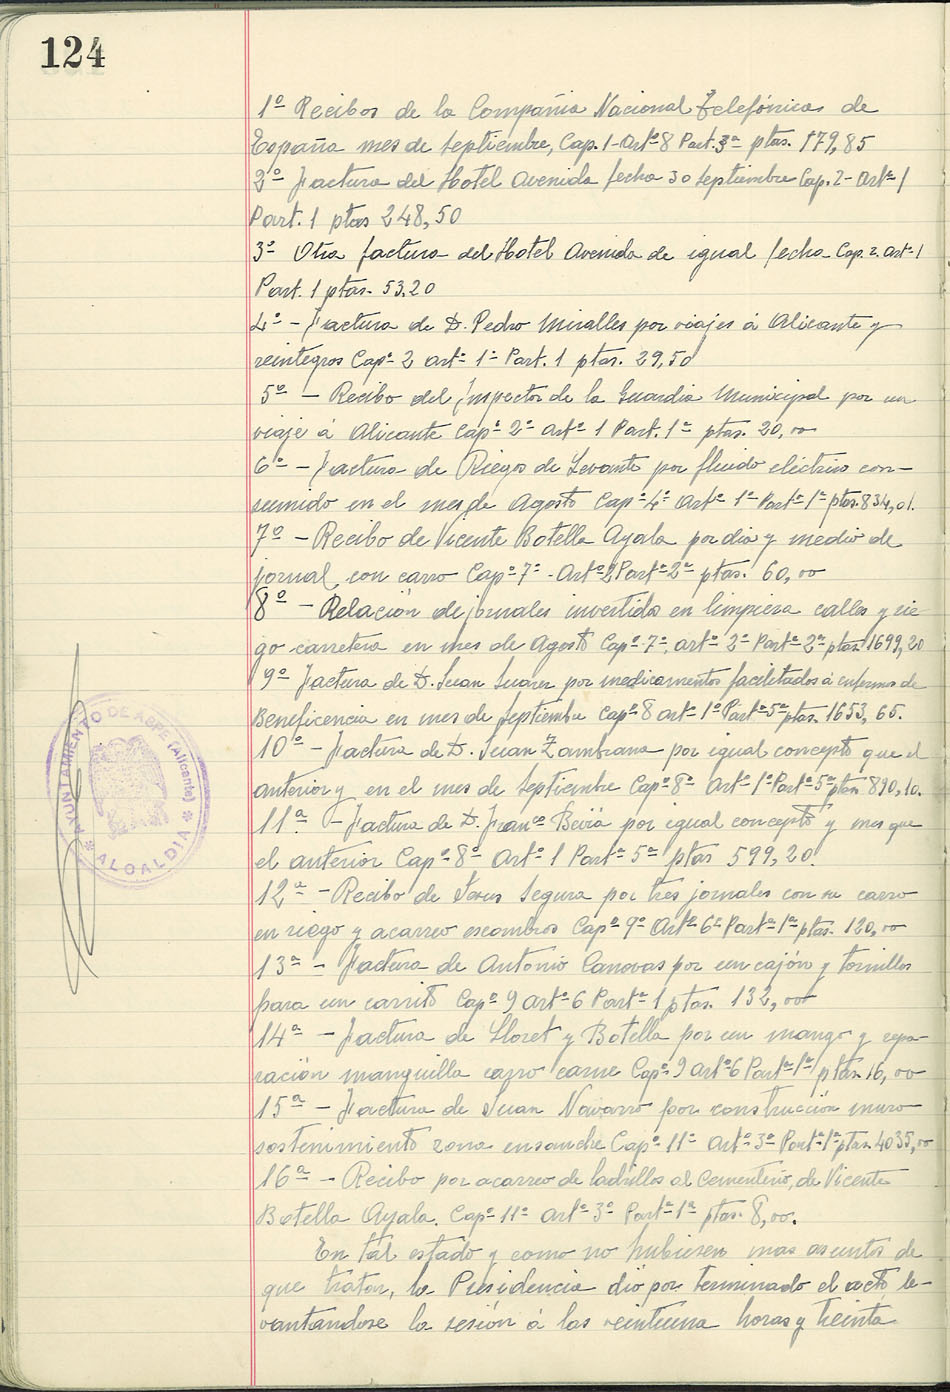 124
1º Recibos de la Compañia Nacional Telefónica de
España mes de Septiembre, Cap. 1-Artº 8 Part. 3ª ptas. 179,85
2º Factura del Hotel Avenida fecha 30 Septiembre Cap. 2- Artº 1
Part. 1 ptas 248,50
3º Otra factura del Hotel Avenida de igual fecha Cap. 2. Artº 1
Part. 1 ptas. 53.20
4º - Factura de D. Pedro Miralles por viajes á Alicante y
reintegros Capº 2 artº 1º Part. 1 ptas. 29,50
5º - Recibo del Inspector de la Guardia Municipal por un
viaje á Alicante Capº 2º Artº 1 Part. 1ª ptas. 20,00
6º - Factura de Riegos de Levante por fluido eléctrico con-
sumido en el mes de Agosto Capº 4º Artº 1º Partª 1ª ptas. 834,01.
7º - Recibo de Vicente Botella Ayala por dia y medio de
jornal con carro Capº 7º - Artº 2 Partª 2ª ptas. 60,00
8º - Relación de jornales invertido en limpieza calles y rie-
go carretera en mes de Agosto Capº 7º, artº 2º Partª 2ª ptas. 1699,20
9º Factura de D. Juan Suarez por medicamentos facilitados á enfermos de
Beneficencia en mes de Septiembre Capº 8 artº 1º Partª 5ª ptas. 1653,65.
10º - Factura de D. Juan Zambrana por igual concepto que el
anterior y en el mes de Septiembre Capº 8º Artº 1º Partª 5ª ptas 890,10.
11ª - Factura de D. Franco Beviá por igual concepto y mes que
el anterior Capº 8º Artº 1 Partª 5ª ptas 599,20.
12ª - Recibo de Segura por tres jornales con su carro
en riego y acarreo escombros Capº 9º Artº 6º Partª 1ª ptas. 120,00
13ª - Factura de Antonio Canovas por un cajón y tornillos
para un carrito Capº 9 artº 6 Partª 1 ptas. 132,00
14ª - Factura de Lloret y Botella por un mango y repa-
ración manguilla carro carne Capº 9 artº 6 Partª 1ª ptas. 16,00
15ª - Factura de Juan Navarro por construcción muro
sostenimiento zona ensanche Capº 11º Artº 3º Partª 1ª ptas. 4035,00
16ª - Recibo por acarreo de ladrillos al Cementerio, de Vicente
Botella Ayala. Capº 11º artº 3º Partª 1ª ptas. 8,00.
En tal estado y como no hubiesen mas asuntos de
que tratar, la Presidencia dió por terminado el acto, le-
vantandose la sesión á las veintiuna horas y treinta
AYUNTAMIENTO DE ASPE (Alicante)
* ALCALDIA *